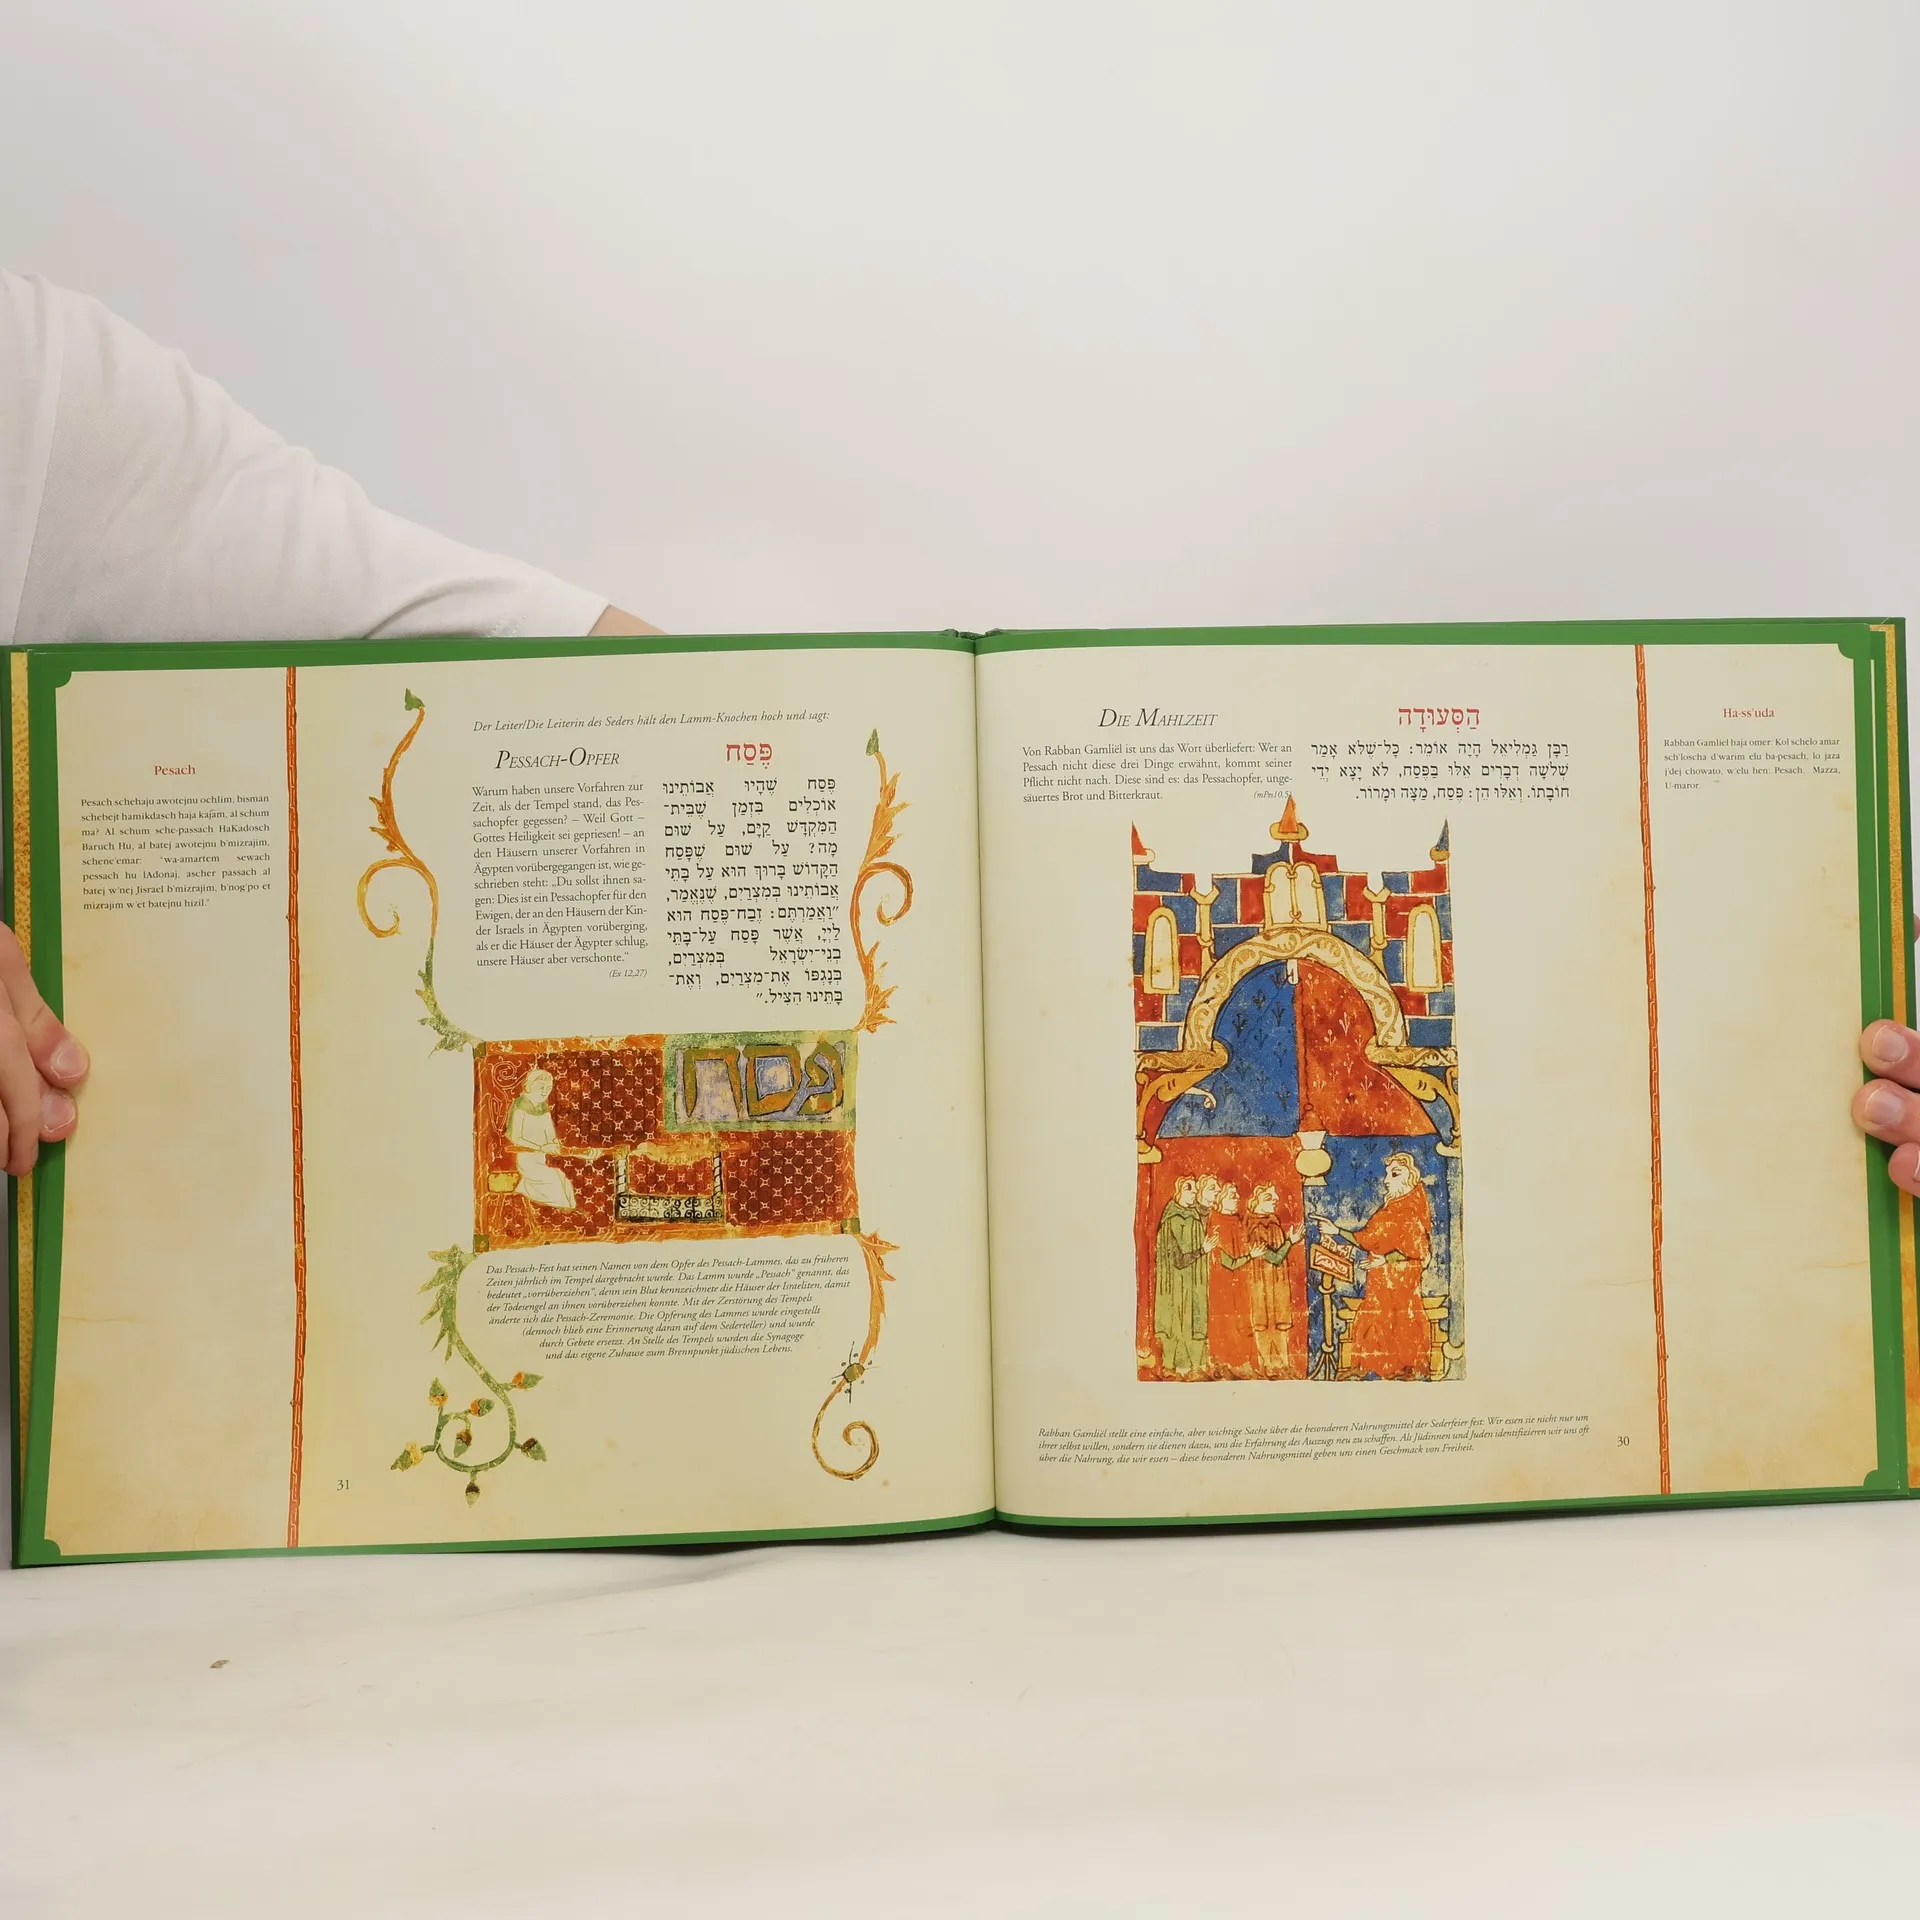 DIE MAHLZEIT
Von Rabban Gamliël ist uns das Wort überliefert: Wer an
Pessach nicht diese drei Dinge erwähnt, kommt seiner
Pflicht nicht nach. Diese sind es: das Pessachopfer, unge-
säuertes Brot und Bitterkraut.
(mPes10,5)
הַסְּעוּדָה
רַבָּן גַּמְלִיאֵל הָיָה אוֹמֵר: כָּל־שֶׁלֹּא אָמַר
שְׁלֹשָׁה דְבָרִים אֵלּוּ בַּפֶּסַח, לֹא יָצָא יְדֵי
חוֹבָתוֹ. וְאֵלּוּ הֵן: פֶּסַח, מַצָּה וּמָרוֹר.
Ha-ss'uda
Rabban Gamliël haja omer: Kol schelo amar
sch'loscha d'warim elu ba-pesach, lo jaza
j'dej chowato, w'elu hen: Pesach, Mazza,
U-maror.
Rabban Gamliël stellt eine einfache, aber wichtige Sache über die besonderen Nahrungsmittel der Sederfeier fest: Wir essen sie nicht nur um
ihrer selbst willen, sondern sie dienen dazu, uns die Erfahrung des Auszugs neu zu schaffen. Als Jüdinnen und Juden identifizieren wir uns oft
über die Nahrung, die wir essen – diese besonderen Nahrungsmittel geben uns einen Geschmack von Freiheit.
30
Der Leiter/Die Leiterin des Seders hält den Lamm-Knochen hoch und sagt:
PESSACH-OPFER
Warum haben unsere Vorfahren zur
Zeit, als der Tempel stand, das Pes-
sachopfer gegessen? – Weil Gott –
Gottes Heiligkeit sei gepriesen! – an
den Häusern unserer Vorfahren in
Ägypten vorübergegangen ist, wie ge-
schrieben steht: „Du sollst ihnen sa-
gen: Dies ist ein Pessachopfer für den
Ewigen, der an den Häusern der Kin-
der Israels in Ägypten vorüberging,
als er die Häuser der Ägypter schlug,
unsere Häuser aber verschonte.“
(Ex 12,27)
פֶּסַח
פֶּסַח שֶׁהָיוּ אֲבוֹתֵינוּ
אוֹכְלִים בִּזְמַן שֶׁבֵּית־
הַמִּקְדָּשׁ קַיָּם, עַל שׁוּם
מָה? עַל שׁוּם שֶׁפָּסַח
הַקָּדוֹשׁ בָּרוּךְ הוּא עַל בָּתֵּי
אֲבוֹתֵינוּ בְּמִצְרַיִם, שֶׁנֶּאֱמַר,
״וַאֲמַרְתֶּם: זֶבַח־פֶּסַח הוּא
לַיְיָ, אֲשֶׁר פָּסַח עַל־בָּתֵּי
בְנֵי־יִשְׂרָאֵל בְּמִצְרַיִם,
בְּנָגְפּוֹ אֶת־מִצְרַיִם, וְאֶת־
בָּתֵּינוּ הִצִּיל.״
Pesach
Pesach schehaju awotejnu ochlim, bisman
schebejt hamikdasch haja kajam, al schum
ma? Al schum sche-passach HaKadosch
Baruch Hu, al batej awotejnu b'mizrajim,
schene'emar: "wa-amartem sewach
pessach hu lAdonaj, ascher passach al
batej w'nej Jisrael b'mizrajim, b'nog'po et
mizrajim w'et batejnu hizil."
פסח
Das Pessach-Fest hat seinen Namen von dem Opfer des Pessach-Lammes, das zu früheren
Zeiten jährlich im Tempel dargebracht wurde. Das Lamm wurde „Pessach“ genannt, das
bedeutet „vorrüberziehen“, denn sein Blut kennzeichnete die Häuser der Israeliten, damit
der Todesengel an ihnen vorüberziehen konnte. Mit der Zerstörung des Tempels
änderte sich die Pessach-Zeremonie. Die Opferung des Lammes wurde eingestellt
(dennoch blieb eine Erinnerung daran auf dem Sederteller) und wurde
durch Gebete ersetzt. An Stelle des Tempels wurden die Synagoge
und das eigene Zuhause zum Brennpunkt jüdischen Lebens.
31